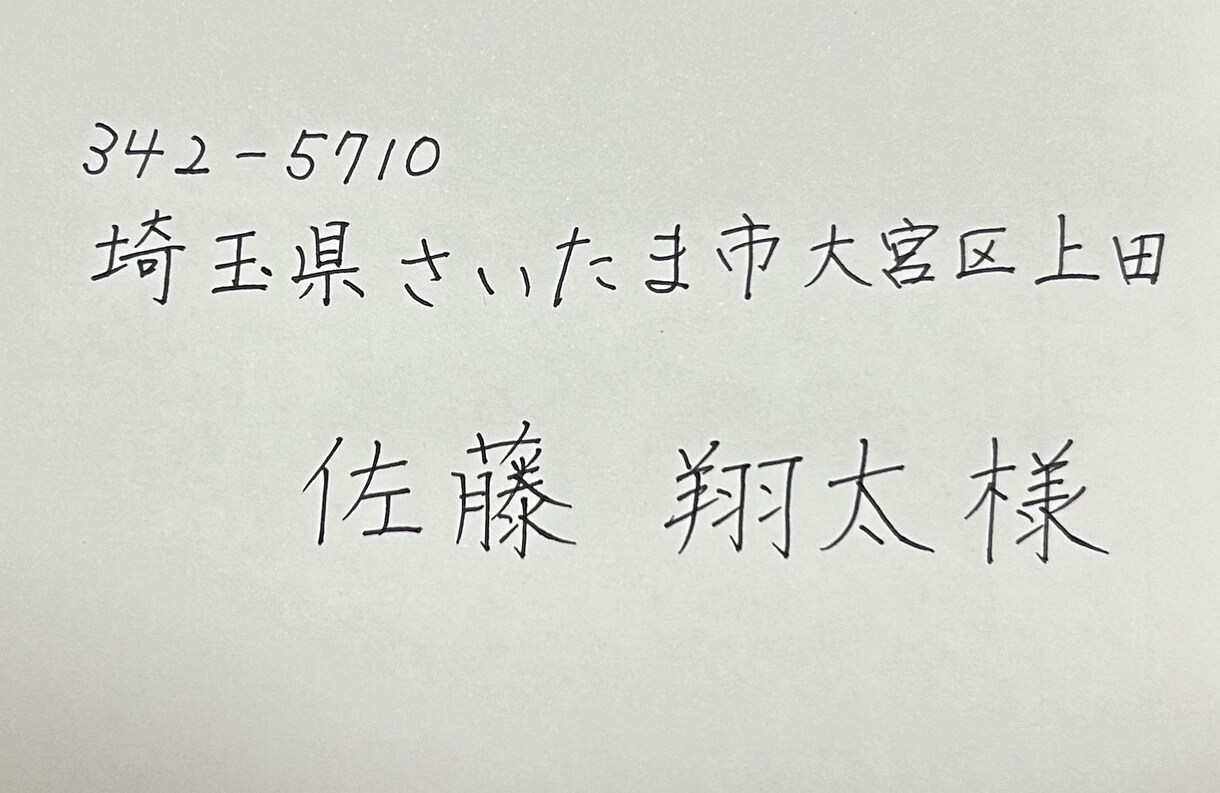 342-5710
埼玉県さいたま市大宮区上田
佐藤 翔太様